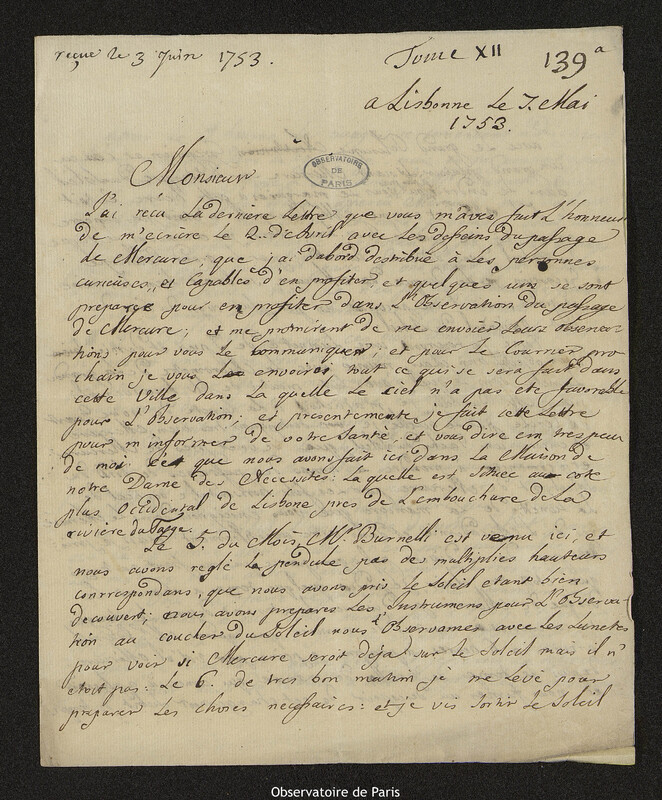 reçue le 3 Juin 1753.
Tome XII
139 a
a Lisbonne Le 7. Mai
1753.
OBSERVATOIRE
DE
PARIS
Monsieur
J'ai reçu La derniere Lettre que vous m'aves fait L'honneur
de m'ecrière le 2. d'Avril avec Les desseins du passage
de Mercure, que j'ai d'abord destribué à Les personnes
curieuses, et Capables d'en profiter, et quelques uns se sont
preparés pour en profiter dans L'Observation du passage
de Mercure; et me promirent de me envoier Leurs observa-
tions pour vous Le communiquer; et pour Le Courrier pro
chain je vous Les envoires tout ce qui se sera fait dans
cette Ville dans La quelle Le ciel n'a pas eté favorable
pour L'Observation; et presentemente je fait cette Lettre
pour m'informer de votre Santé, et vous dire em tres peu
de moi. Cét que nous avons fait ici dans La Maison de
notre Dame des Necessités: La quelle est située au coté
plus Occidental de Lisbone pres de L'embouchure de La
rivière du Tage.
Le 5. du Mois, Mr. Burnelli est venu ici, et
nous avons reglé La pendule pas de maltiplies hauteurs
conrrespondans, que nous avons pris Le Soleil etant bien
decouvert; nous avons preparés Les Instrumens pour L'Observa-
tion au coucher du Soleil nous L'Observames avec Les Lunetes
pour voir si Mercure seroit deja sur Le Soleil mais il n'
etoit pas: Le 6. de tres bon matin je me Levé pour
preparer Les choses necessaires: et je vis sortir Le Soleil
Observatoire de Paris